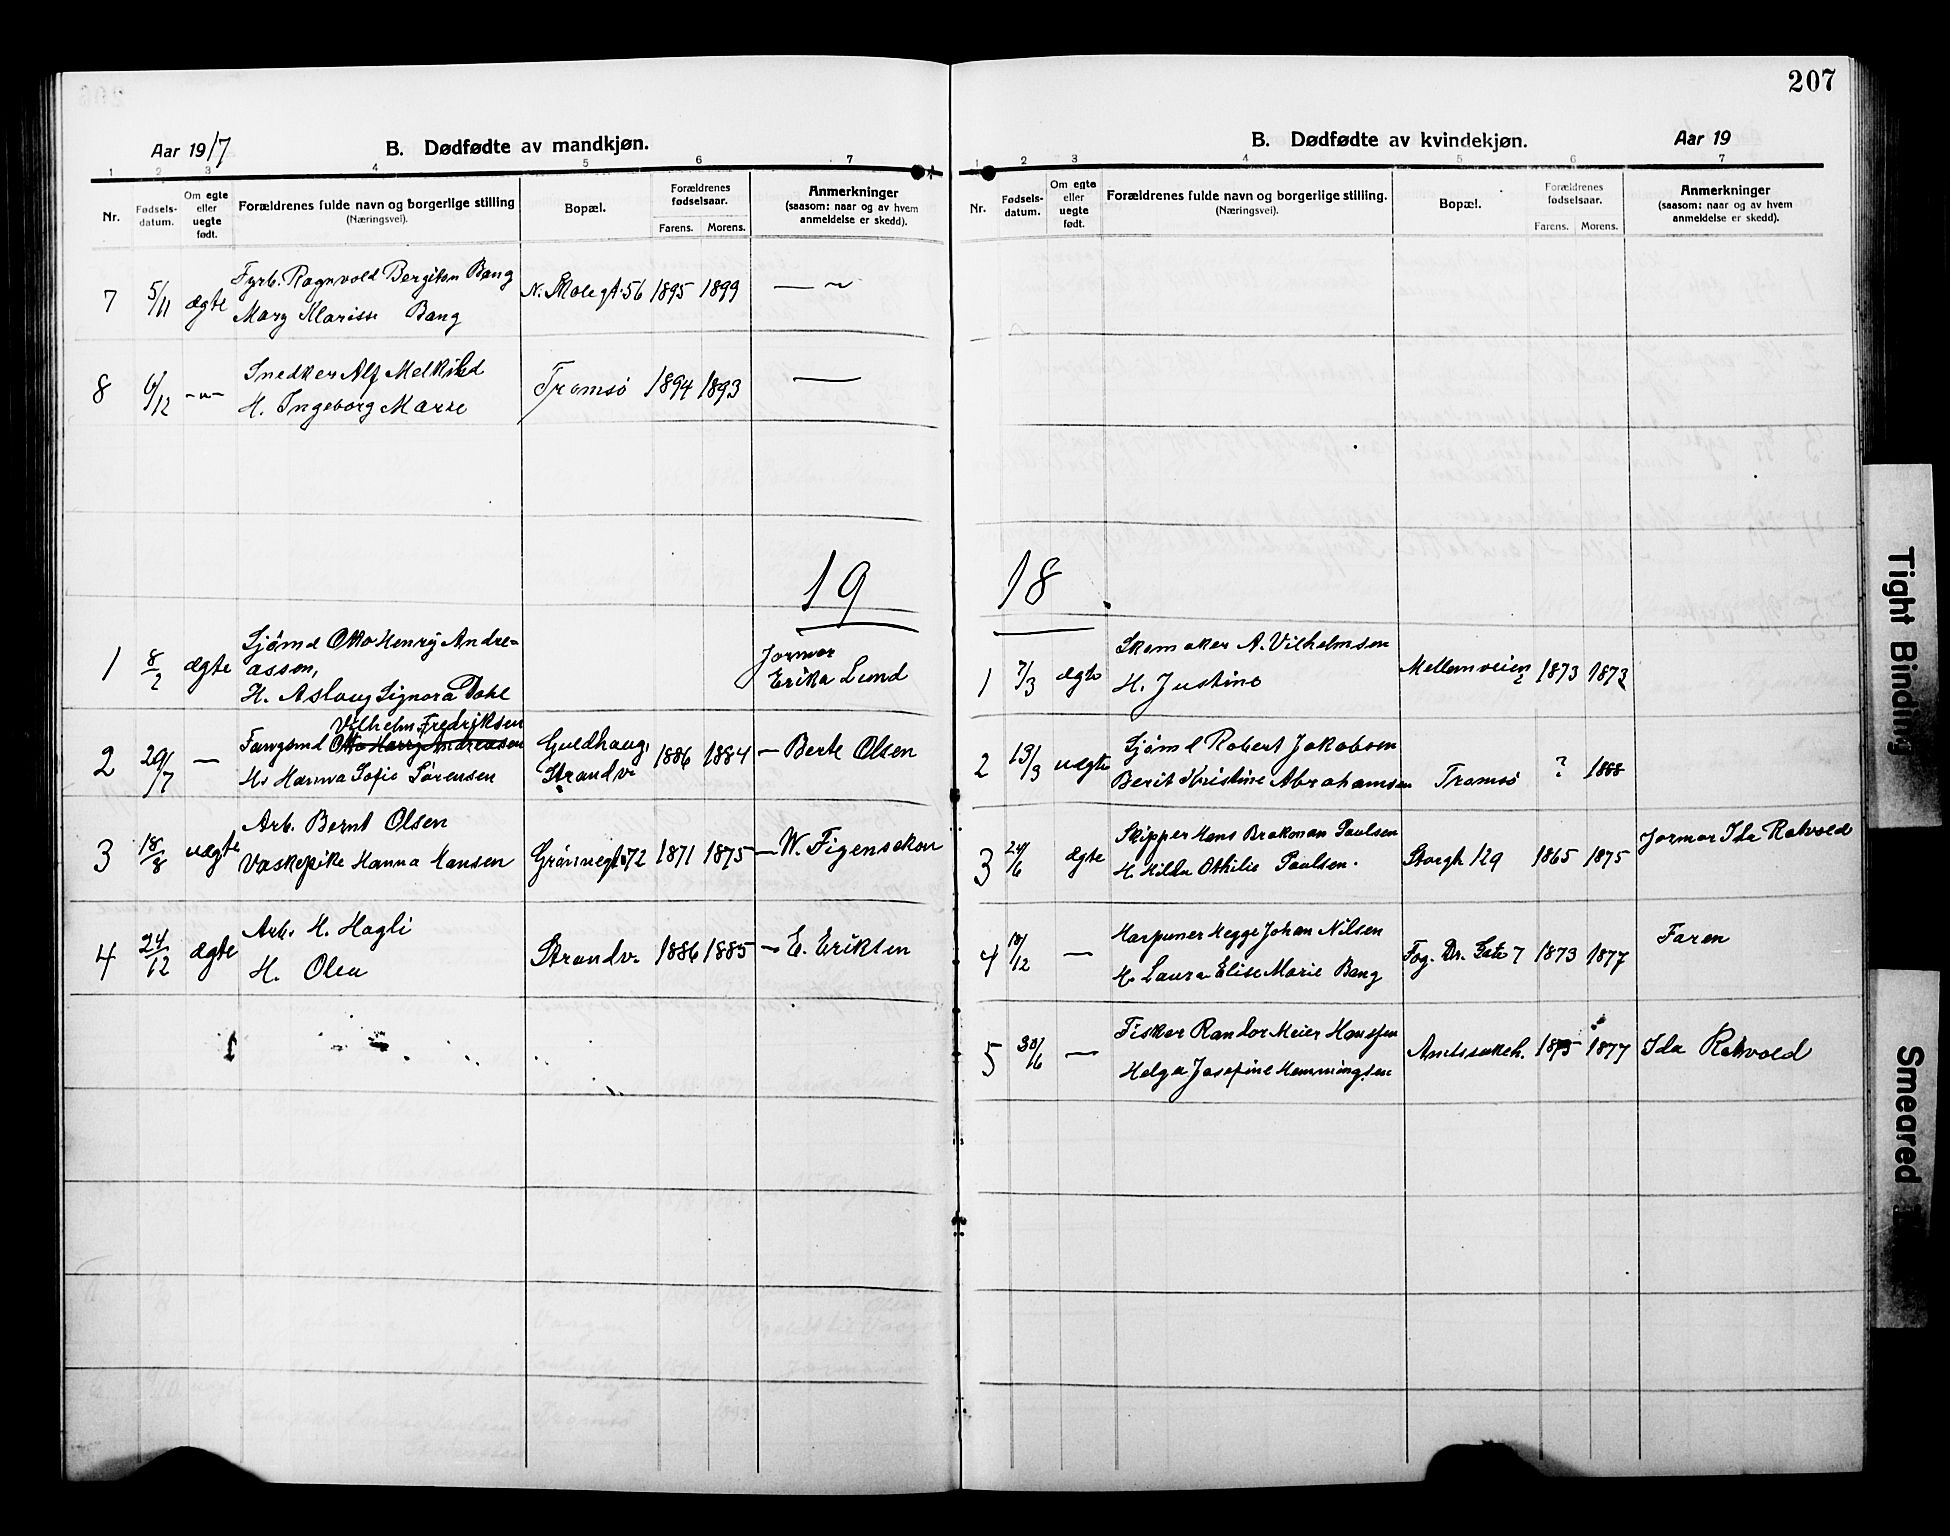 207
Aar 1917
B. Dødfødte av mandkjøn.
1 2 3 4 5 6 7
Nr.
Fødsels-
datum.
Om egte
eller
uegte
født.
Forældrenes fulde navn og borgerlige stilling
(Næringsvei).
Bopæl.
Forældrenes
fødselsaar.
Farens. Morens.
Anmerkninger
(saasom: naar og av hvem
anmeldelse er skedd).
Fyrb. Ragnvold Bergiton Bang
7 5/11 ægte N. Skolegt. 56 1895 1899 — 〃
Mary Klarisse Bang
Snedker Alf Melkild
8 6/12 -〃- Tromsø 1894 1893 —
H. Ingeborg Marie
19
Sjømd Otto Henry Andre-
1 8/2 ægte assen,
H. Aslaug Signora Dahl
Jormor
Erika Lund
Vilhelm Fredriksen
Fangsmd Otto Harry Andreasen
2 29/7 — Guldhaug, 1886 1884 — Berte Olsen
H. Hanna Sofie Sørensen Strandv.
Arb. Bernt Olsen
3 18/8 uægte Vaskepike Hanna Hansen Grønnegt. 72 1871 1875 — W. Figenschou
Arb. H. Hagli
4 24/12 ægte Strandv. 1886 1885 — E. Eriksen
H. Olea
B. Dødfødte av kvindekjøn.
Aar 19
1 2 3 4 5 6 7
Nr.
Fødsels-
datum.
Om egte
eller
uegte
født.
Forældrenes fulde navn og borgerlige stilling.
(Næringsvei).
Bopæl.
Forældrenes
fødselsaar.
Farens. Morens.
Anmerkninger
(saasom: naar og av hvem
anmeldelse er skedd).
18
Skomaker A. Vilhelmsen
1 7/3 ægte Mellemveien 1873 1873
H. Justine
Sjømd Robert Jakobsen
2 19/3 uægte Tromsø ? 1888
Berit Kristine Abrahamsen
Skipper Hans Brakman Paulsen
3 24/6 ægte Storgt. 129 1865 1875 Jormor Ida Rotvold
H. Hilda Othilie Paulsen.
Harpuner Hegge Johan Nilsen
4 10/12 — Fog. Dr. Gate 7 1873 1877 Faren
H. Laura Elise Marie Bang
Fisker Randor Meier Hanssen
5 30/6 — 1875 1877 Ida Rotvold
Helga Josefine Hemmingsen
Tight Binding
Smeared